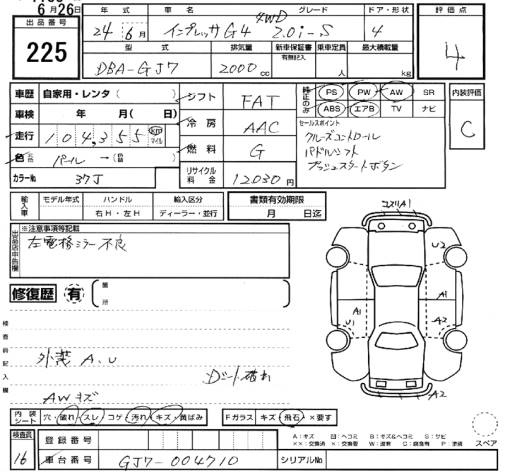 6月26日
出品番号 年式 車名 グレード ドア・形状 評価点
225 24年6月 インプレッサG4 4WD 2.0i-S 4 4
型式 排気量 新車保証書 有無記入 乗車定員 最大積載量
DBA-GJ7 2000cc 人 kg
車歴 自家用・レンタ( ) シフト FAT 純正のみ PS PW AW SR 内装評価
車検 年 月( 日) 冷房 AAC ABS エアB TV ナビ C
走行 104,355 km マイル セールスポイント
燃料 G クルーズコントロール
色 パール→( ) パドルシフト
カラーNo 37J リサイクル料金 12030円 プッシュスタートボタン
輸入車 モデル年式 ハンドル 輸入区分 書類有効期限
右H・左H ディーラー・並行 月 日迄
コスリA1
出品店申告欄 ※注意事項等記載
左電格ミラー不良
U2
A1
A1
U1
A2
A2
修復歴 有 箇所
検査員記入欄
外装 A、U
Dシート破れ
AWキズ
内装シート 穴・破れ・スレ・コゲ・汚れ・キズ・黄ばみ Fガラス キズ・飛石・×要す
A:キズ B:キズ&ヘコミ S:サビ
××:交換済 ×:交換 W:波消 C:腐食有 P:塗装
スペア
検査員 16 登録番号
車台番号 GJ7-004710 シリアルNo